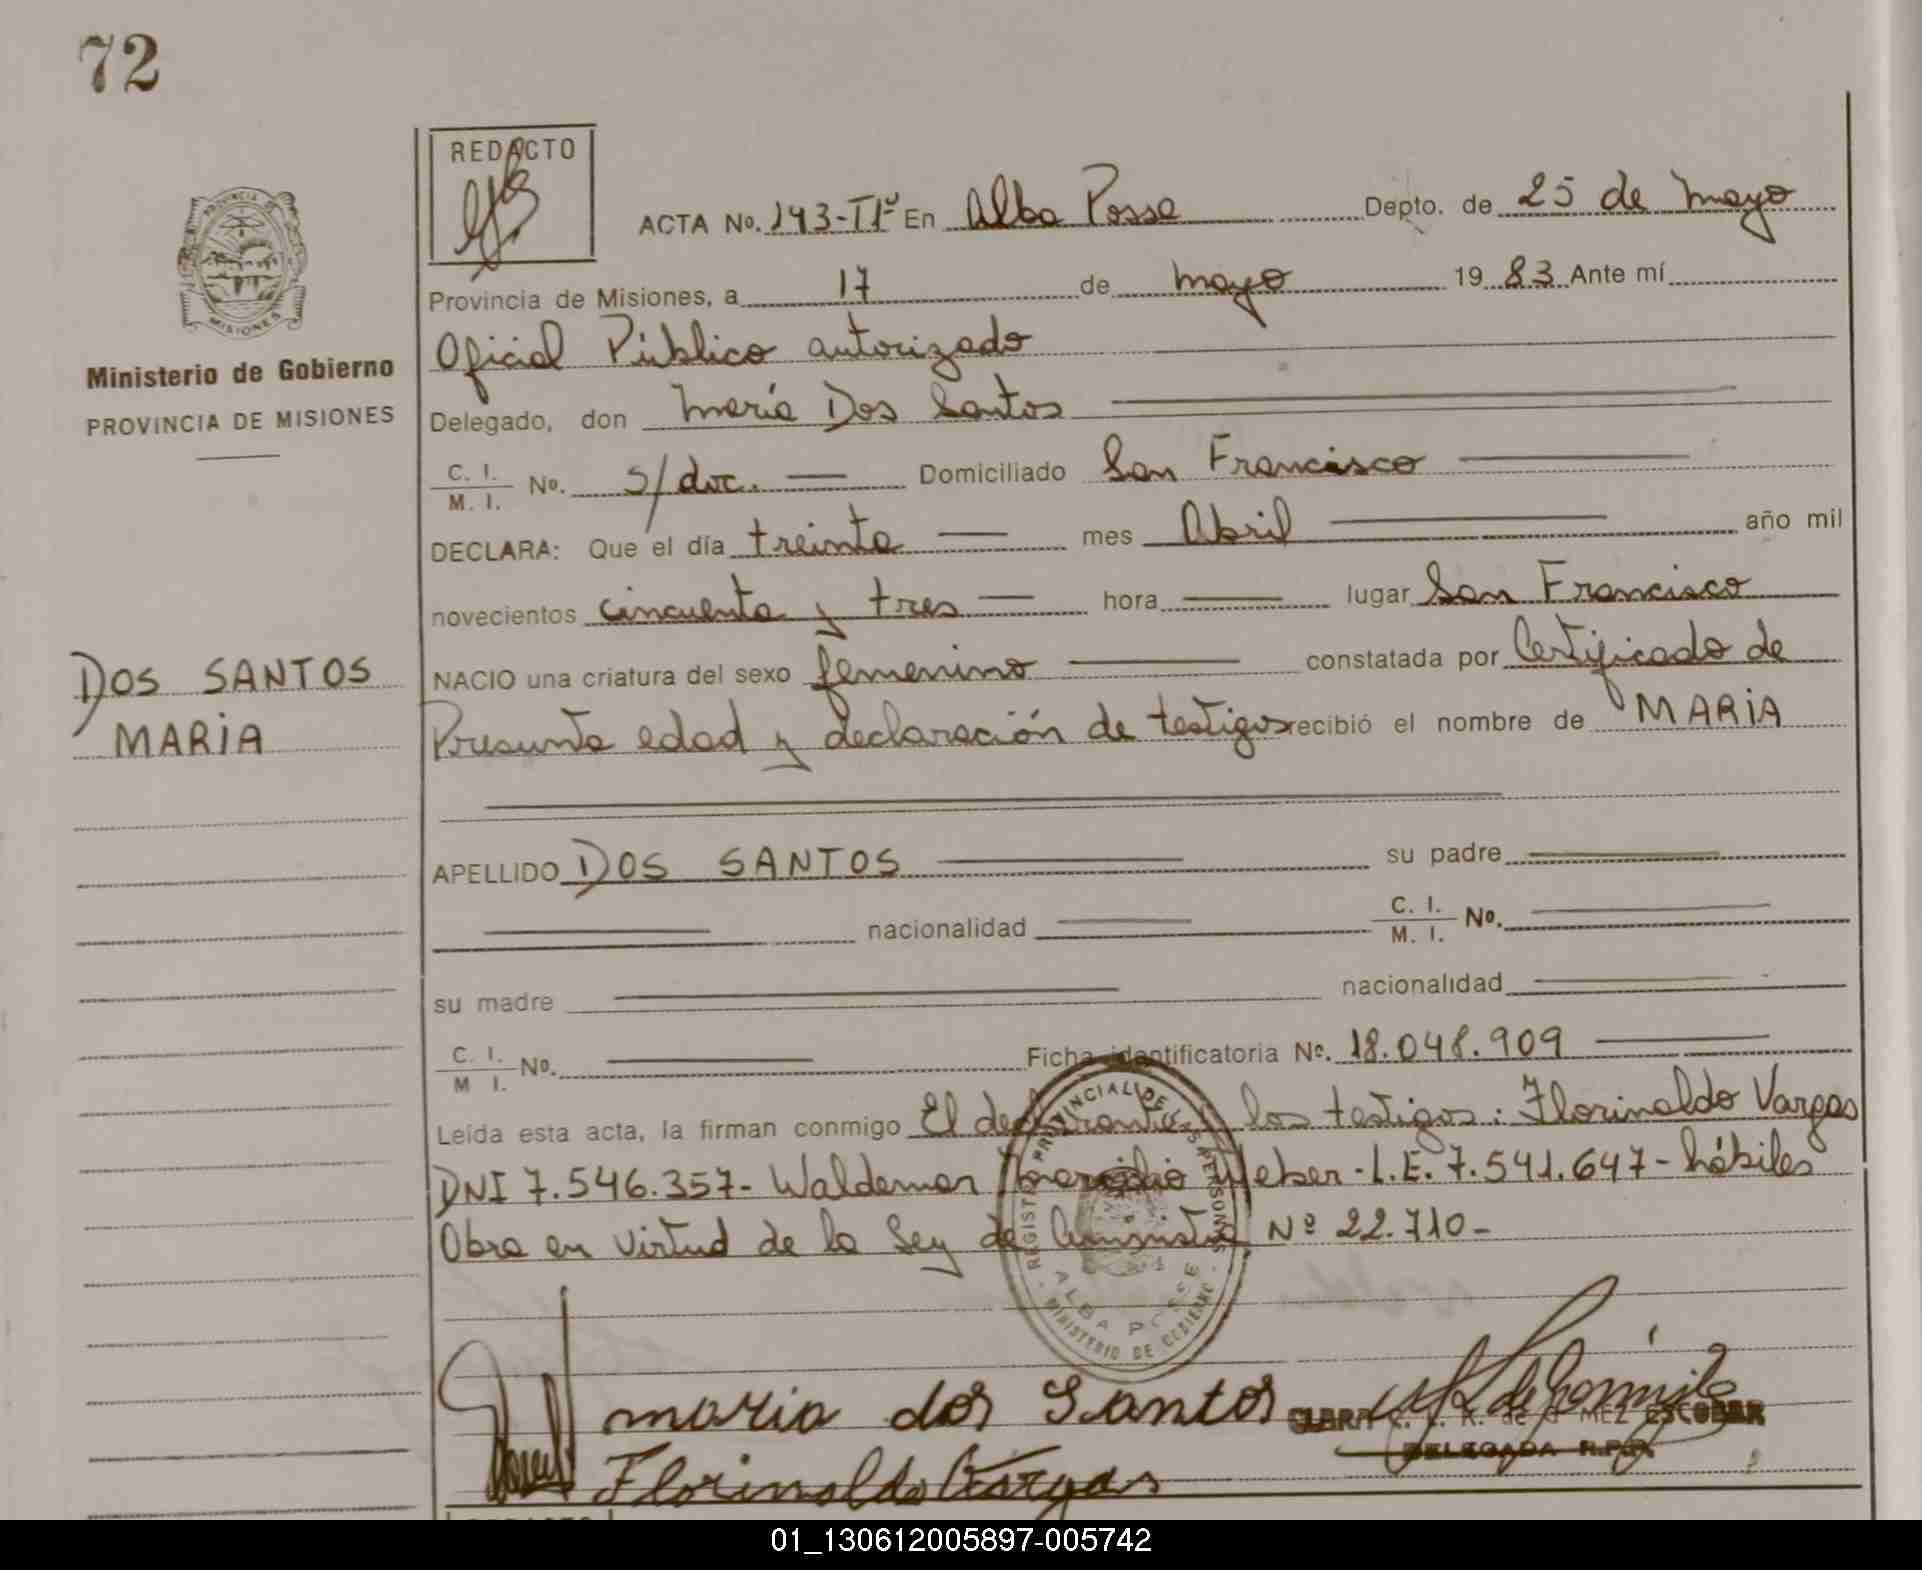 72
REDACTO
ACTA No. 143-Tº1º En Alba Posse Depto. de 25 de mayo
Provincia de Misiones, a 17 de mayo 19 83 Ante mí
Oficial Público autorizado
Ministerio de Gobierno
PROVINCIA DE MISIONES
Delegado, don María Dos Santos
C. I. M. I. No. s/doc. Domiciliado San Francisco
DECLARA: Que el día treinta mes Abril año mil
novecientos cincuenta y tres hora lugar San Francisco
DOS SANTOS
MARIA
NACIO una criatura del sexo femenino constatada por Certificado de
Presunta edad y declaración de testigos recibió el nombre de MARIA
APELLIDO DOS SANTOS su padre
nacionalidad C. I. M. I. No.
su madre nacionalidad
C. I. M I. No. Ficha identificatoria No. 18.048.909
Leída esta acta, la firman conmigo El declarante y los testigos: Florinaldo Vargas
DNI 7.546.357- Waldemar Weber-L.E. 7.541.647- hábiles
Obra en virtud de la Ley de Amnistía Nº 22.710-
REGISTRO PROVINCIAL DE LAS PERSONAS
ALBA POSSE
MINISTERIO DE GOBIERNO
maria dos Santos
CLARA DE ESCOBAR
DELEGADA R.P.P.
Florinaldo Vargas
PROVINCIA DE
MISIONES
01_130612005897-005742